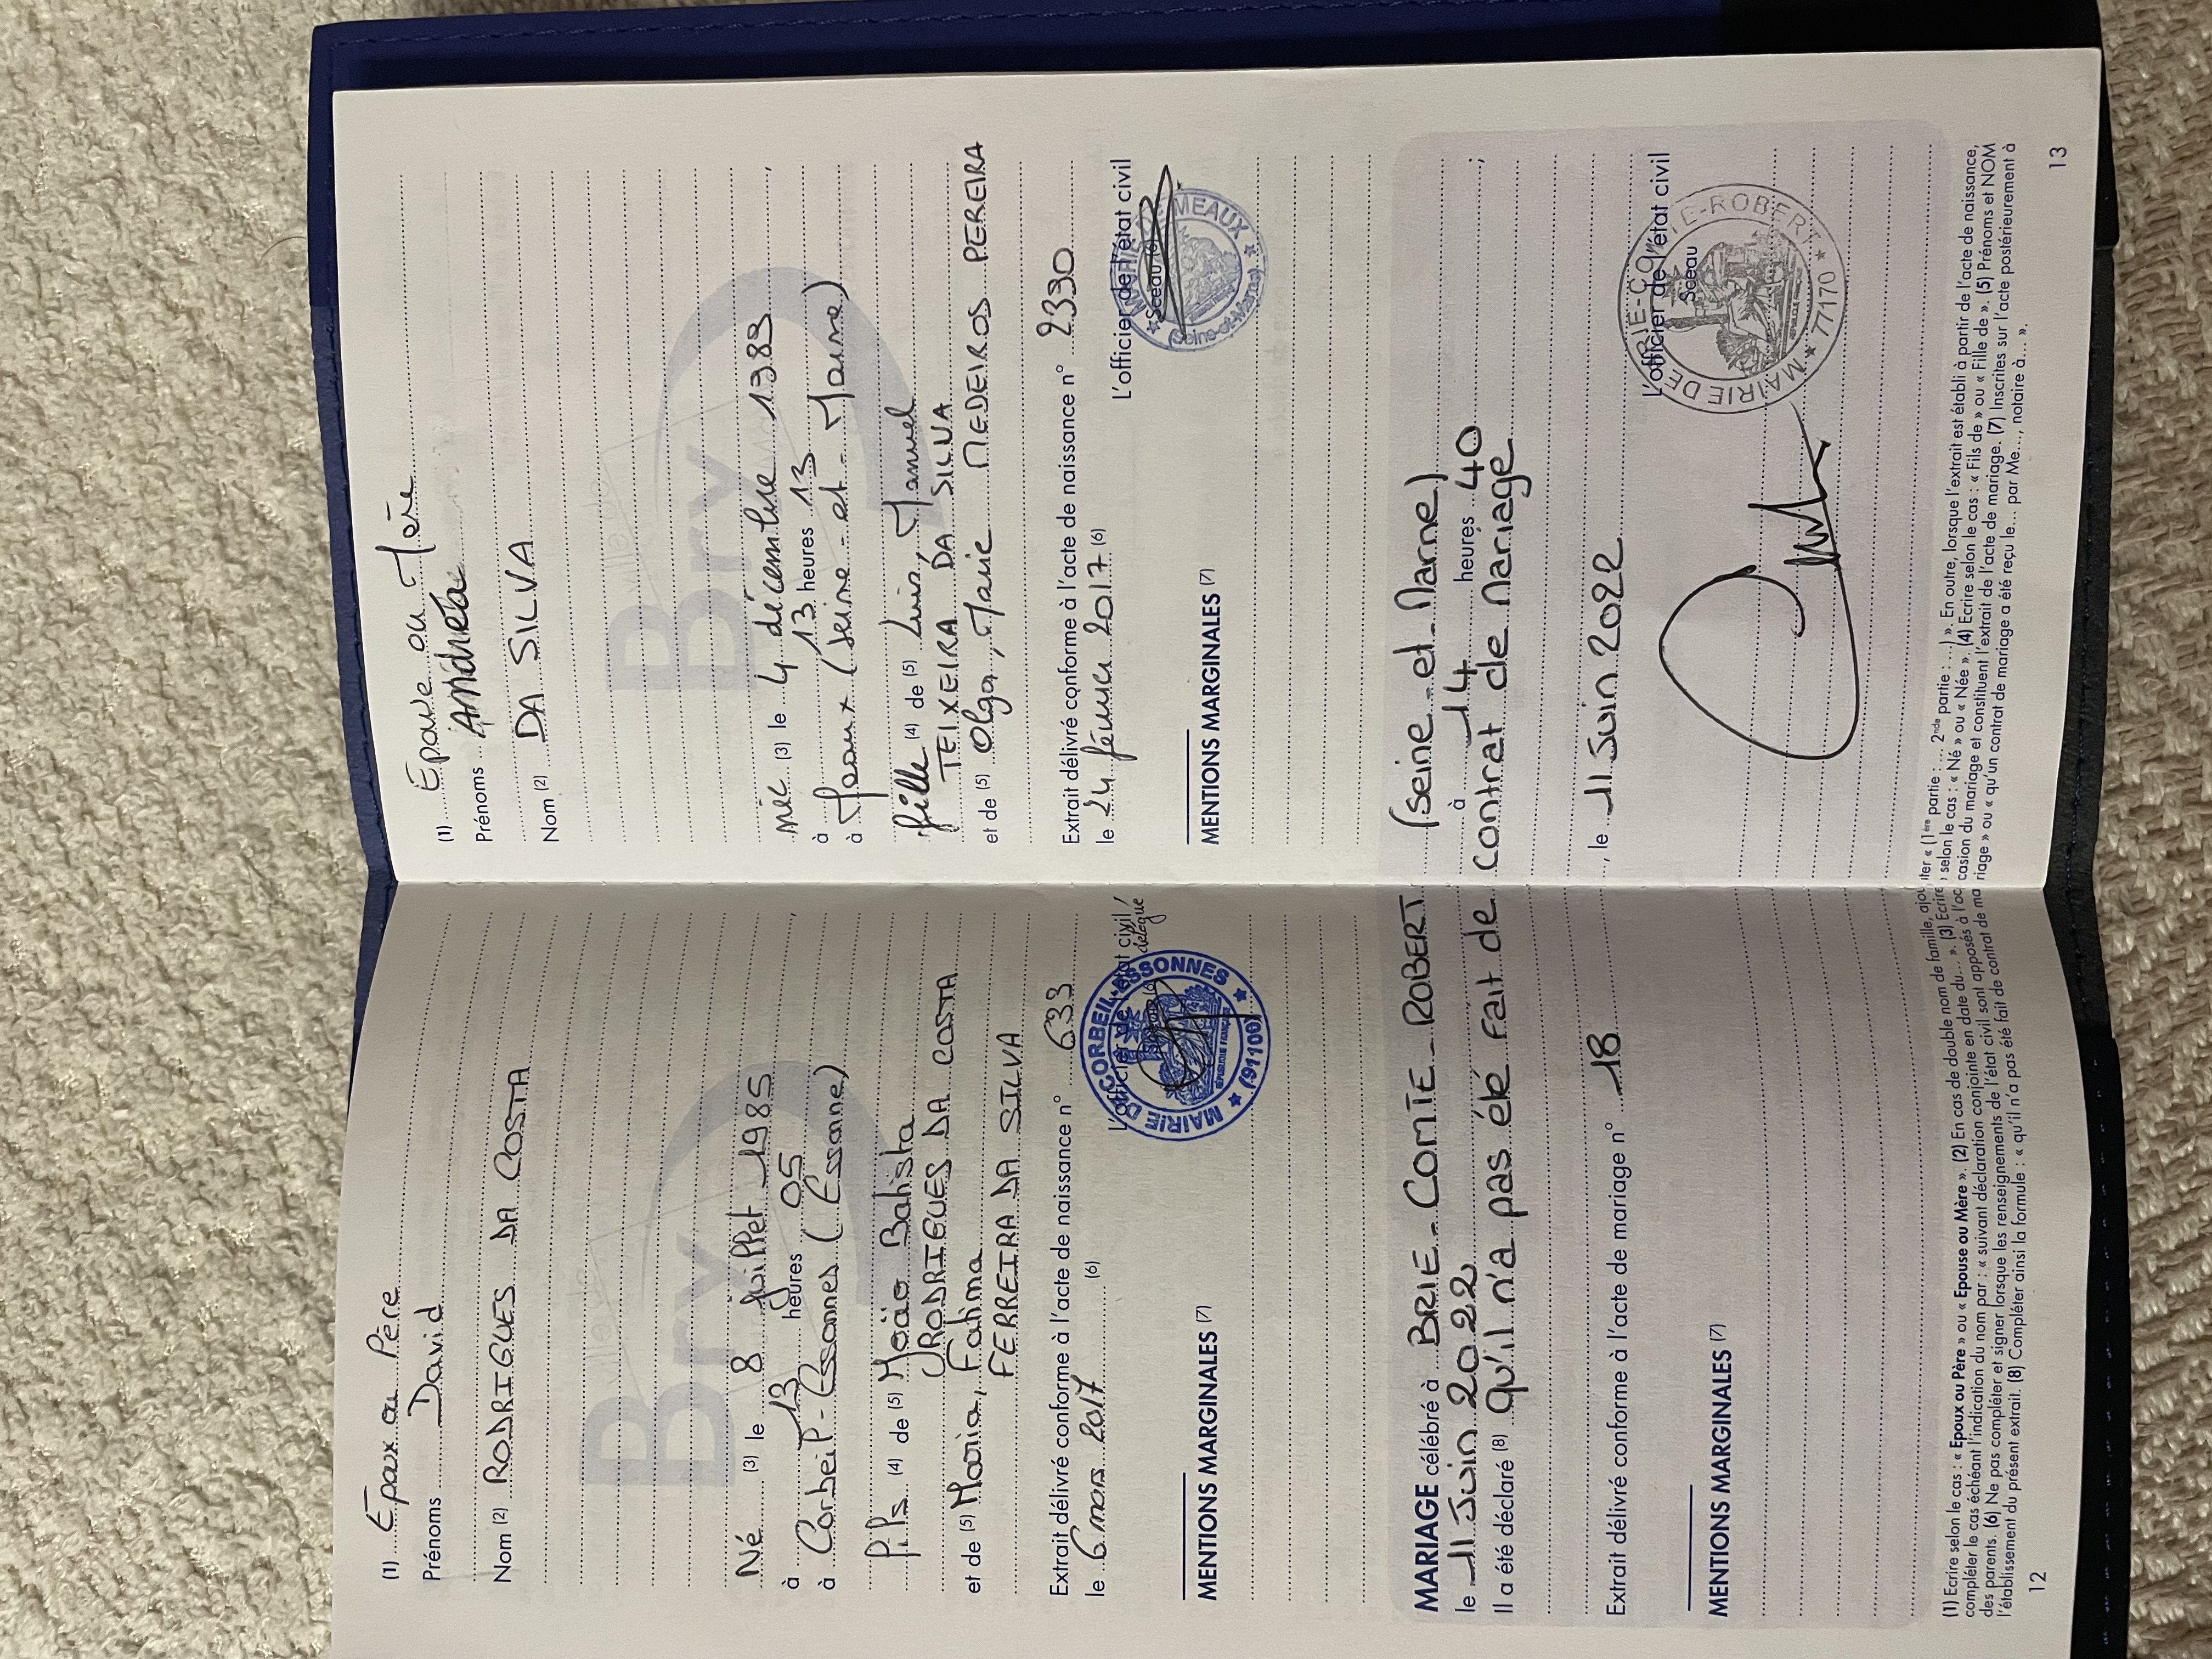 (1) Epoux ou Père
Prénoms David
Nom (2) RODRIGUES DA COSTA
Ville de
Bry
Né (3) le 8 juillet 1985,
à 13 heures 05
à Corbeil-Essonnes (Essonne)
fils (4) de (5) João Batista
RODRIGUES DA COSTA
et de (5) Maria, Fatima
FERREIRA DA SILVA
Extrait délivré conforme à l'acte de naissance n° 633
le 6 mars 2017 (6)
L'officier de l'état civil /
délégué
MAIRIE DE CORBEIL-ESSONNES
(91100)
RÉPUBLIQUE FRANÇAISE
MENTIONS MARGINALES (7)
(1) Epouse ou Mère
Prénoms Andréa
Nom (2) DA SILVA
Ville de
Bry
née (3) le 4 décembre 1989,
à 13 heures 13
à Meaux (Seine-et-Marne)
fille (4) de (5) Luis, Manuel
TEIXEIRA DA SILVA
et de (5) Olga, Marie MEDEIROS PEREIRA
Extrait délivré conforme à l'acte de naissance n° 2330
le 24 février 2017 (6)
L'officier de l'état civil
Sceau (6)
MEAUX
(Seine-et-Marne)
MENTIONS MARGINALES (7)
MARIAGE célébré à BRIE-COMTE-ROBERT (Seine-et-Marne)
le 11 Juin 2022 à 14 heures 40 ;
Il a été déclaré (8) qu'il n'a pas été fait de contrat de mariage
Extrait délivré conforme à l'acte de mariage n° 18, le 11 Juin 2022
L'officier de l'état civil
Sceau
MAIRIE DE BRIE-COMTE-ROBERT
77170
MENTIONS MARGINALES (7)
(1) Ecrire selon le cas : « Epoux ou Père » ou « Epouse ou Mère ». (2) En cas de double nom de famille, ajouter « (1ère partie : ... 2nde partie : ...) ». En outre, lorsque l'extrait est établi à partir de l'acte de naissance,
compléter le cas échéant l'indication du nom par : « suivant déclaration conjointe en date du... ». (3) Ecrire selon le cas : « Né » ou « Née ». (4) Ecrire selon le cas : « Fils de » ou « Fille de ». (5) Prénoms et NOM
des parents. (6) Ne pas compléter et signer lorsque les renseignements de l'état civil sont apposés à l'occasion du mariage et constituent l'extrait de l'acte de mariage. (7) Inscrites sur l'acte postérieurement à
l'établissement du présent extrait. (8) Compléter ainsi la formule : « qu'il n'a pas été fait de contrat de mariage » ou « qu'un contrat de mariage a été reçu le... par Me..., notaire à... ».
12
13